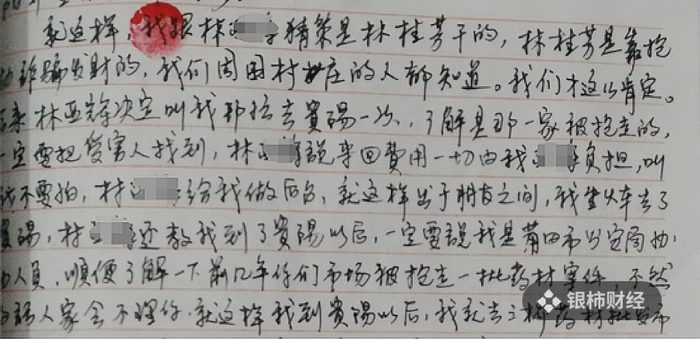 就这样,我跟林 猜策是林桂芳干的,林桂芳是靠抢
诈骗发财的,我们周围村庄的人都知道。我们才这以肯定。
来林亚 决定叫我 去贵 一次,了解是那一家被抢走的,
一定要把受害人找到,林 说来回费用一切由我 负担,叫
我不要怕,林 给我做后台,就这样出于朋友之间,我坐火车去了
,林 还教我到了贵 以后,一定要说我是莆田市公安局协
人员,顺便了解一下前几年你们市场被抢走一批药材案件,不然
人家会不理你.就这样我到贵 以后,我就去 药材批发市
银柿财经